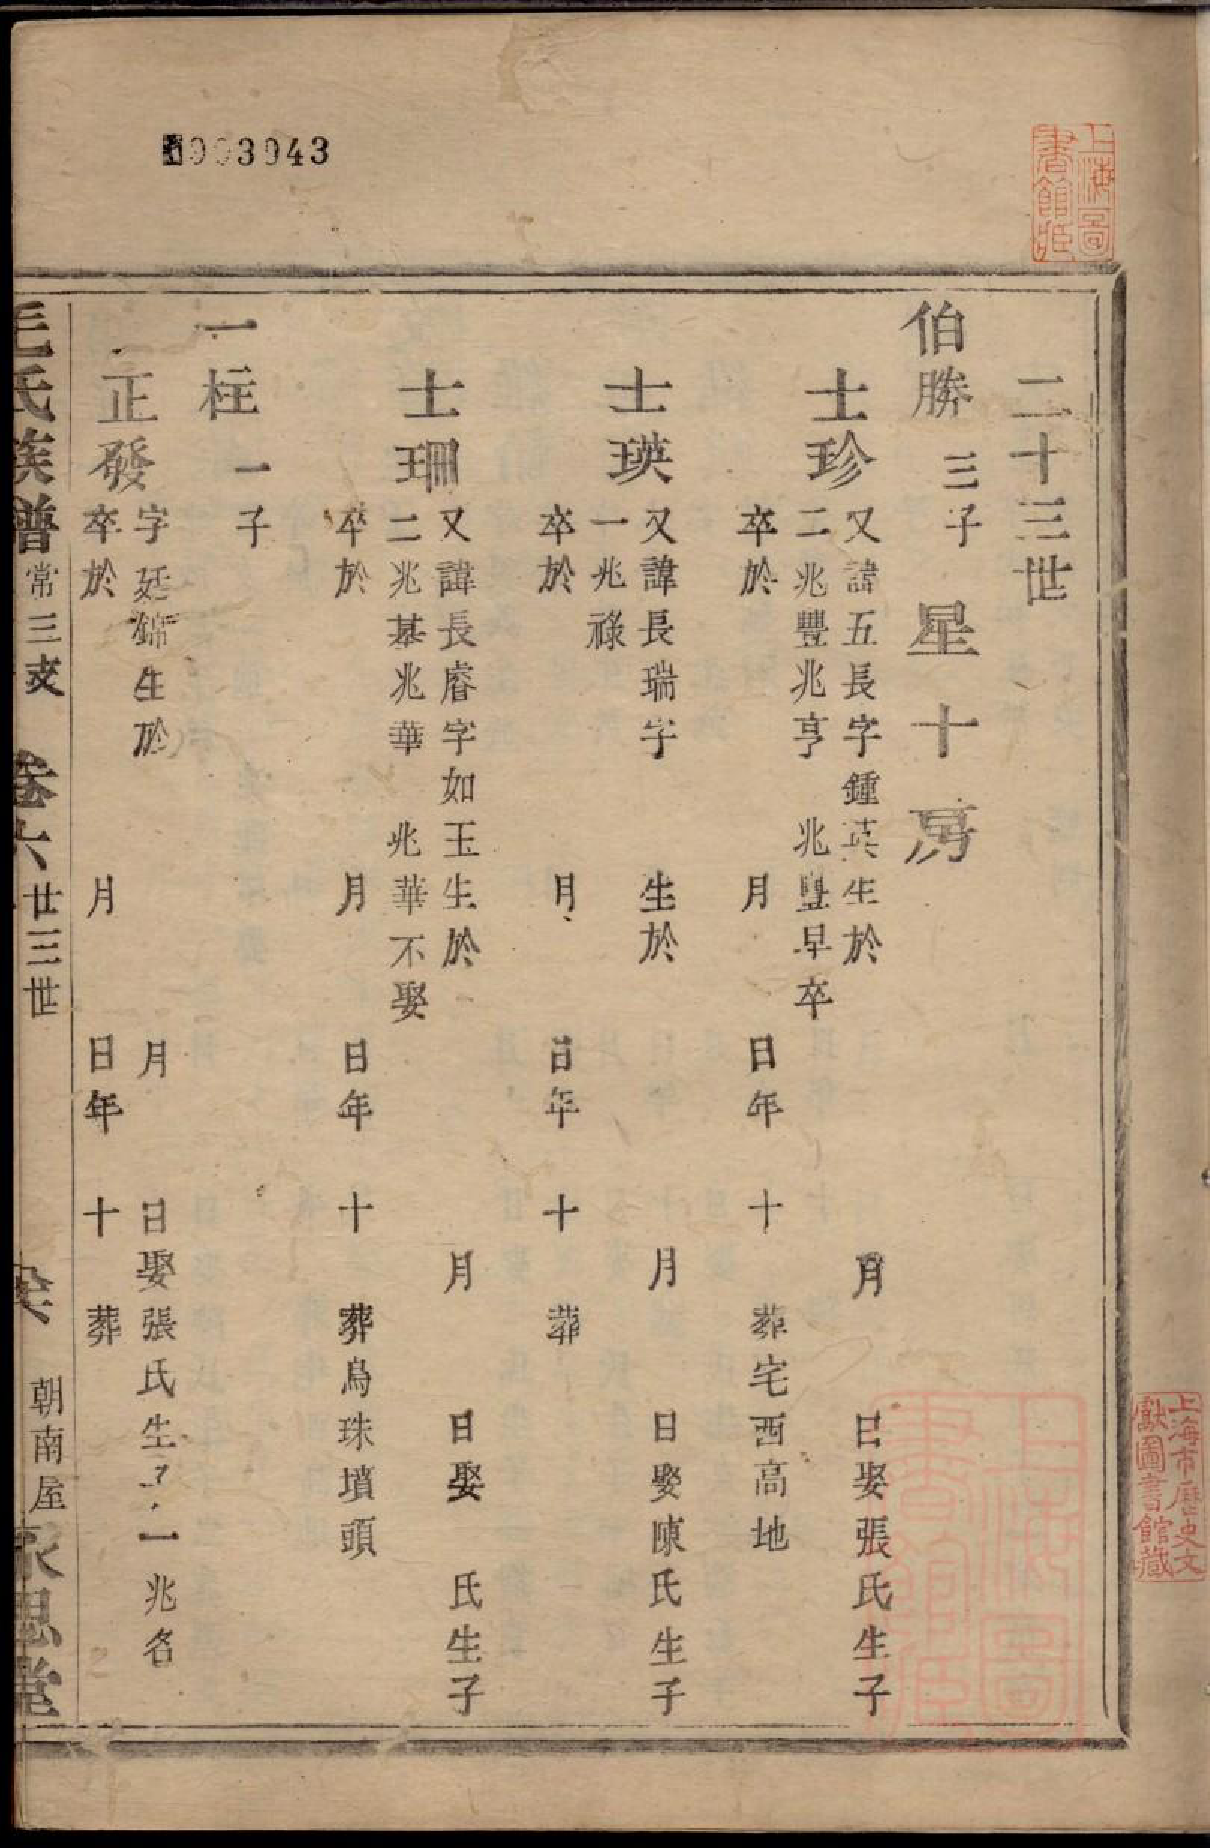 003943
上海圖書館藏
二十三世
伯勝 三子 星十房
士珍 又諱五長字鍾英生於 月 日娶張氏生子
二兆豐兆亨 兆豐早卒
卒於 月 日年 十 葬宅西高地
士瑛 又諱長瑞字 生於 月 日娶陳氏生子
一兆祿
卒於 月 日年 十 葬
士珊 又諱長睿字如玉生於 月 日娶 氏生子
二兆基兆華 兆華不娶
卒於 月 日年 十 葬烏珠墳頭
一柱 一子
正發 字廷錦生於 月 日娶張氏生子一兆名
卒於 月 日年 十 葬
毛氏族譜 常三支 卷六 世三世 朝南屋 永思堂
上海圖書館藏
上海市歷史文獻圖書館藏